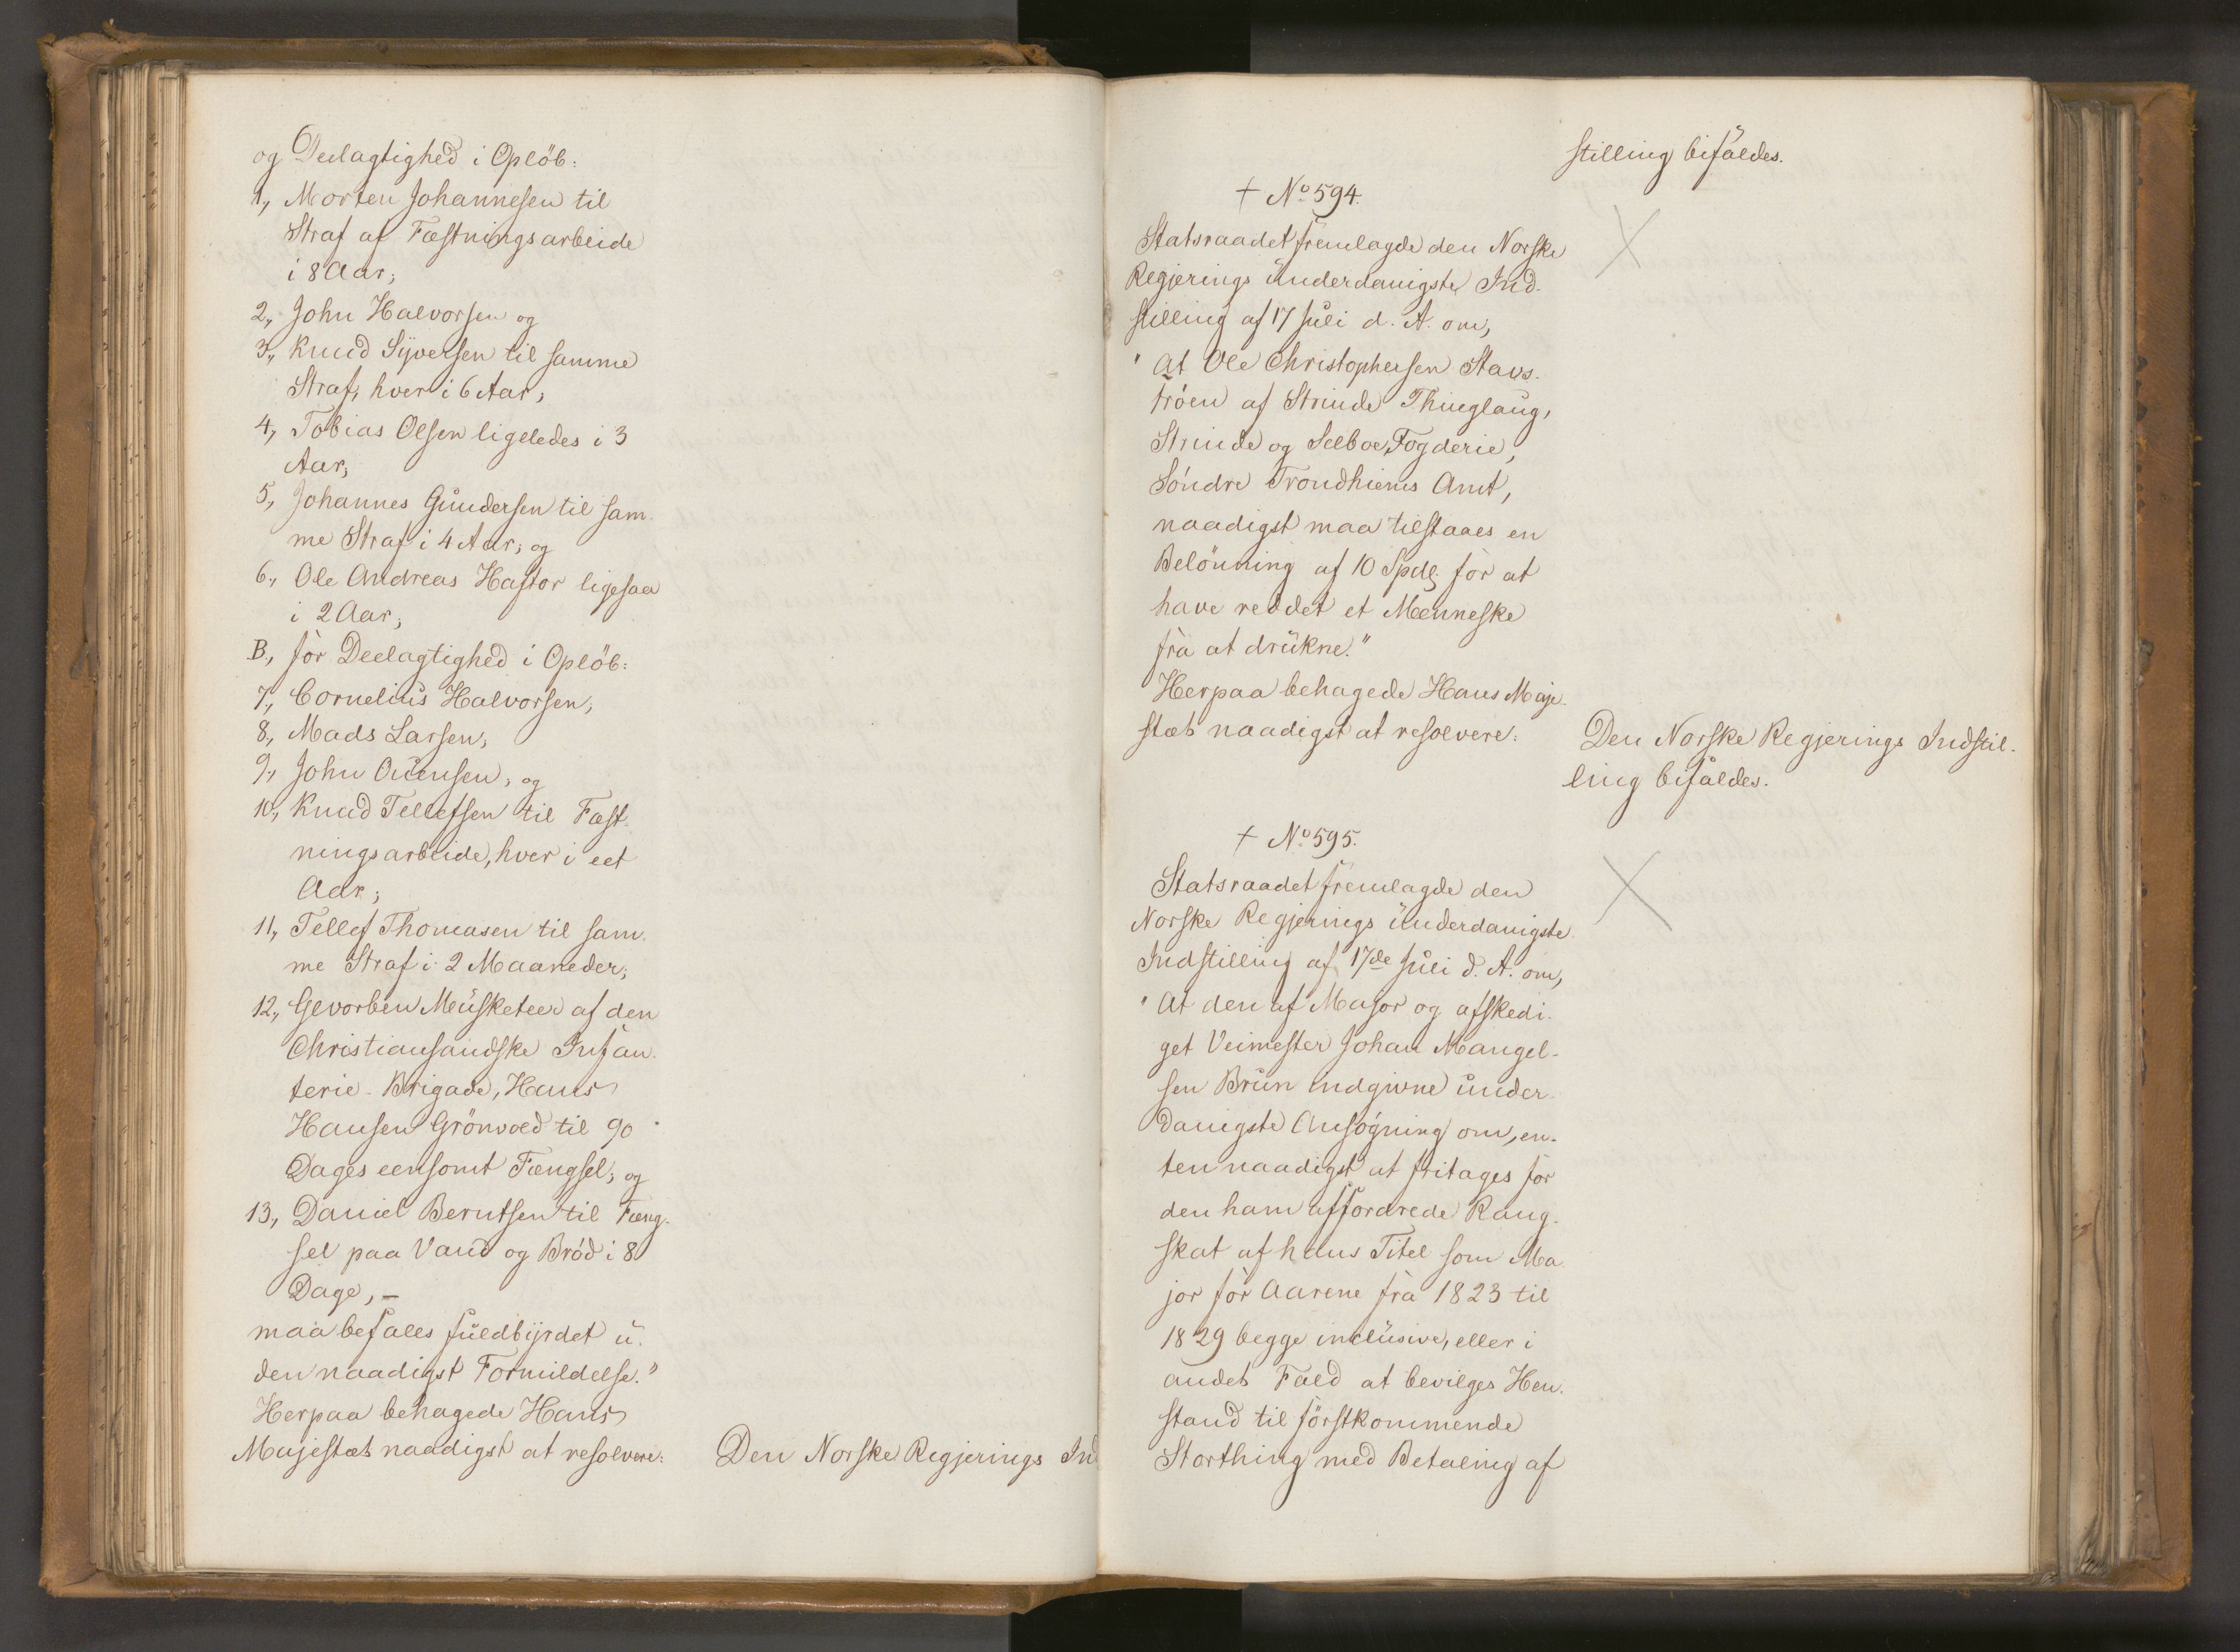 og Deelagtighed i Opløb:
1, Morten Johannesen til
Straf af Fæstningsarbeide
i 8 Aar;
2, John Halvorsen og
3, Knud Syversen til samme
Straf, hver i 6 Aar;
4, Tobias Olsen ligeledes i 3
Aar;
5, Johannes Gundersen til sam-
me Straf i 4 Aar; og
6, Ole Andreas Haftor ligesaa
i 2 Aar;
B, for Deelagtighed i Opløb:
7, Cornelius Halvorsen,
8, Mads Larsen,
9, John Ouensen, og
10, Knud Tellefsen til Fæst-
ningsarbeide, hver i eet
Aar;
11, Tellef Thomasen til sam-
me Straf i 2 Maaneder;
12, Gevorben Musketeer af den
Christiansandske Infan-
terie-Brigade, Hans
Hansen Grönvold til 90
Dages eensomt Fængsel; og
13, Daniel Berntsen til Fæng-
sel paa Vand og Brød i 8
Dage, –
maa befales fuldbyrdet u-
den naadigst Formildelse."
Herpaa behagede Hans
Majestæt naadigst at resolvere:
Den Norske Regjerings Ind
stilling bifaldes.
+ No 594.
Statsraadet fremlagde den Norske
Regjerings underdanigste Ind-
stilling af 17 Juli d. A. om,
"At Ole Christophersen Stavs-
trøen af Strinde Thinglaug,
Strinde og Selboe Fogderie,
Söndre Trondhiems Amt,
naadigst maa tilstaaes en
Belönning af 10 Spdlr. for at
have reddet et Menneske
fra at drukne."
Herpaa behagede Hans Maje-
stæt naadigst at resolvere:
Den Norske Regjerings Indstil-
ling bifaldes.
+ No 595.
Statsraadet fremlagde den
Norske Regjerings underdanigste
Indstilling af 17de Juli d. A. om,
"At den af Major og afskedi-
get Veimester Johan Mangel-
sen Brun indgivne under-
danigste Ansøgning om, en-
ten naadigst at fritages for
den ham affordrede Rang-
skat af hans Titel som Ma-
jor for Aarene fra 1823 til
1829 begge inclusive, eller i
andet Fald at bevilges Hen-
stand til förstkommende
Storthing med Betaling af